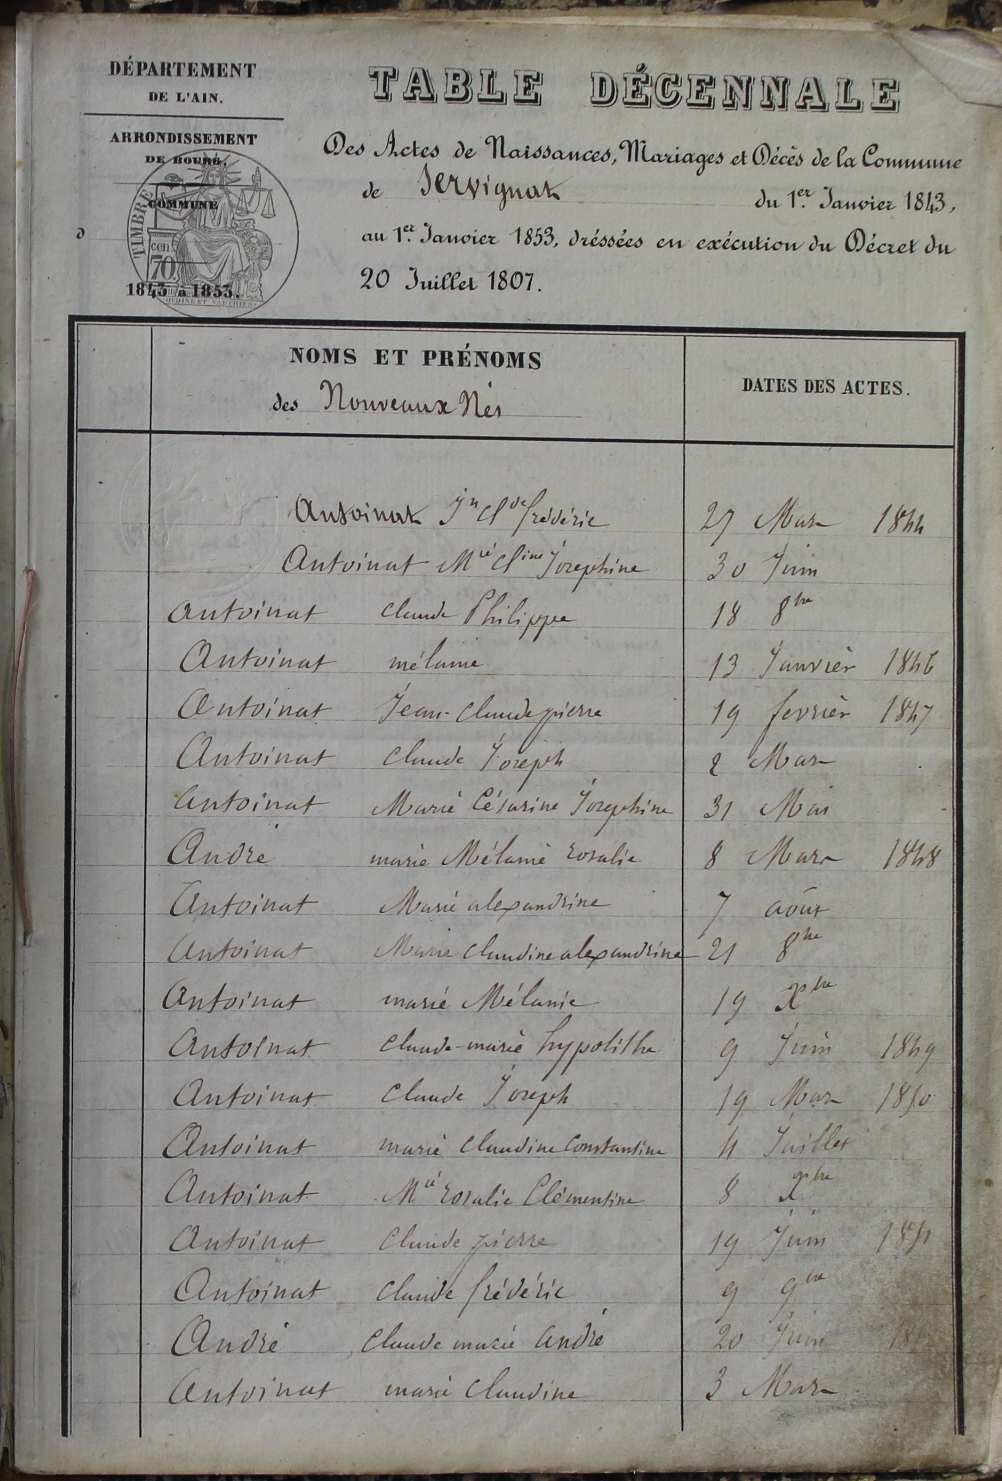 DÉPARTEMENT
DE L'AIN.
ARRONDISSEMENT
DE BOURG.
COMMUNE
TIMBRE
70 cen
1843 à 1853.
TABLE DÉCENNALE
Des Actes de Naissances, Mariages et Décès de la Commune
de Servignat du 1.er Janvier 1843,
au 1.er Janvier 1853, dréssées en exécution du Décret du
20 Juillet 1807.
NOMS ET PRÉNOMS
des Nouveaux Nés
DATES DES ACTES.
Antoinat Jn Cl de frédéric 27 Mars 1844
Antoinat Mie Cl ine Josephine 30 Juin
Antoinat Claude Philippe 18 8bre
Antoinat mélanie 13 Janvièr 1846
Antoinat Jean-Claude pierre 19 fevrièr 1847
Antoinat Claude Joseph 2 Mars
Antoinat Marie Césarine Josephine 31 Mai
André marie Mélanie rosalie 8 Mars 1848
Antoinat Marie alexandrine 7 août
Antoinat Marie Claudine alexandrine 21 8bre
Antoinat marie Mélanie 19 Xbre
Antoinat Claude-marie hypolithe 9 Juin 1849
Antoinat Claude Joseph 19 Mars 1850
Antoinat marie Claudine Constantine 4 Juillet
Antoinat Mie rosalie Clémentine 8 Xbre
Antoinat Claude pierre 19 Juin 1851
Antoinat Claude frédéric 9 9bre
André Claude marie André 20 Juin
Antoinat marie Claudine 3 Mars